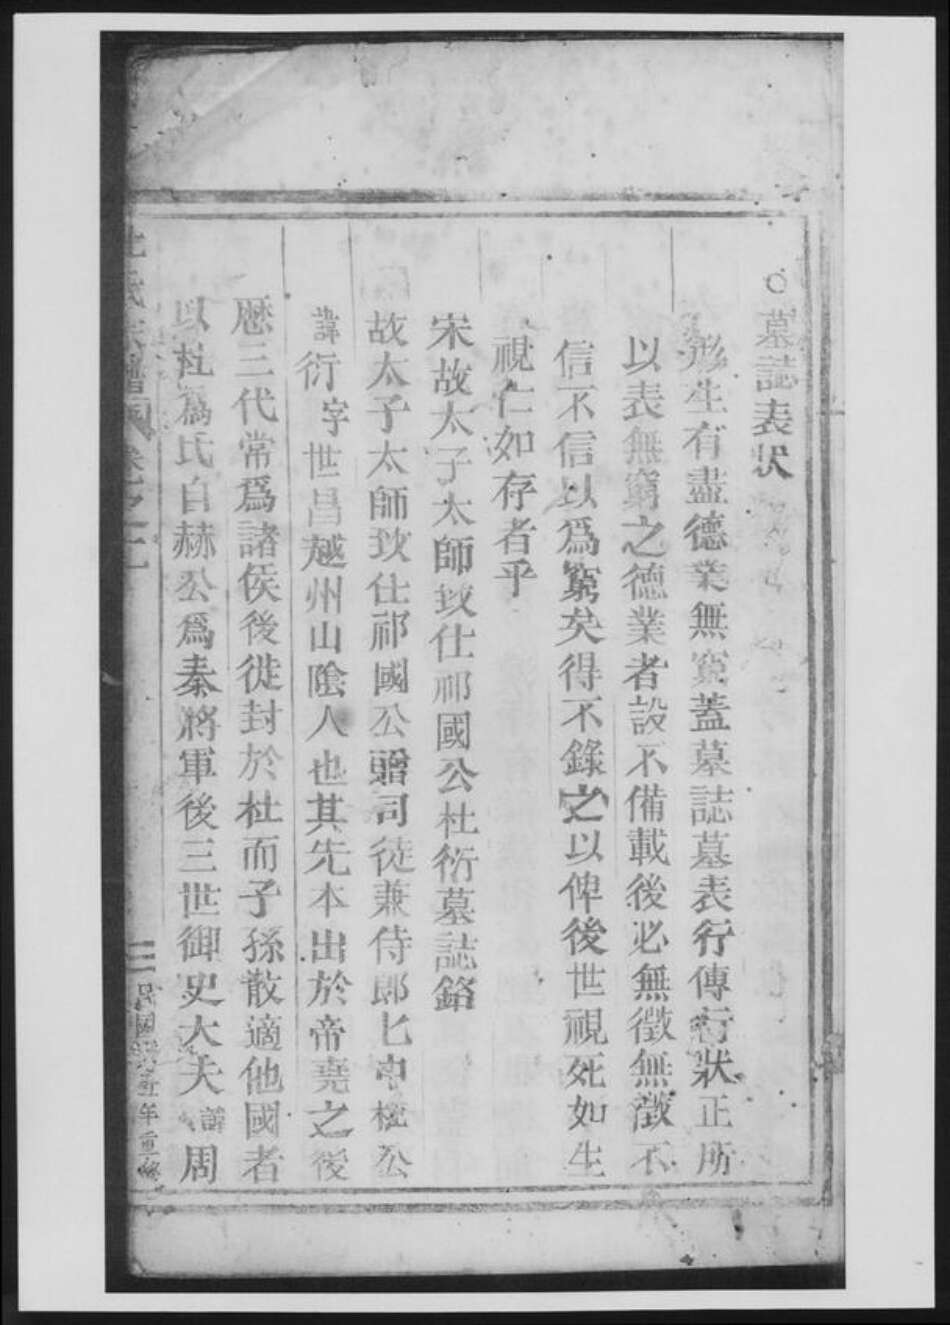 ○墓誌表狀
形生有盡德業無窮蓋墓誌墓表行傳行狀正所
以表無窮之德業者設不備載後必無徵無徵不
信不信以爲窮矣得不錄之以俾後世視死如生
視仁如存者乎
宋故太子太師致仕祁國公杜衍墓誌銘
故太子太師致仕祁國公贈司徒兼侍郎七中杜公
諱衍字世昌越州山陰人也其先本出於帝堯之後
歷三代常爲諸侯後徙封於杜而子孫散適他國者
以杜爲氏自赫公爲秦將軍後三世御史大夫諱周
杜氏宗譜 卷之二 三 民國 年重修